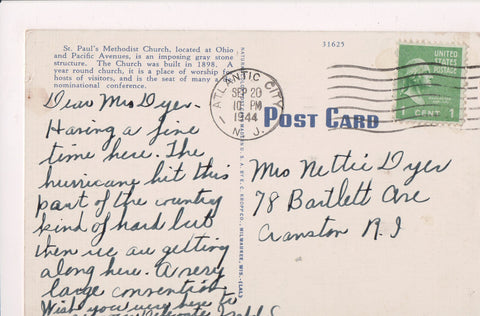 St. Paul's Methodist Church, located at Ohio
and Pacific Avenues, is an imposing gray stone
structure. The Church was built in 1898. A
year round church, it is a place of worship for
hosts of visitors, and is the seat of many a
nominational conference.
31625
ATLANTIC CITY
SEP 20
10 PM
1944
N. J.
UNITED STATES
POSTAGE
1 CENT 1
POST CARD
Dear Mrs Dyer-
Having a fine
time here. The
hurricane hit this
part of the country
kind of hard but
then we are getting
along here. A very
large convention
Wish you were here to
Mrs Nettie Dyer
78 Bartlett Ave
Cranston R.I